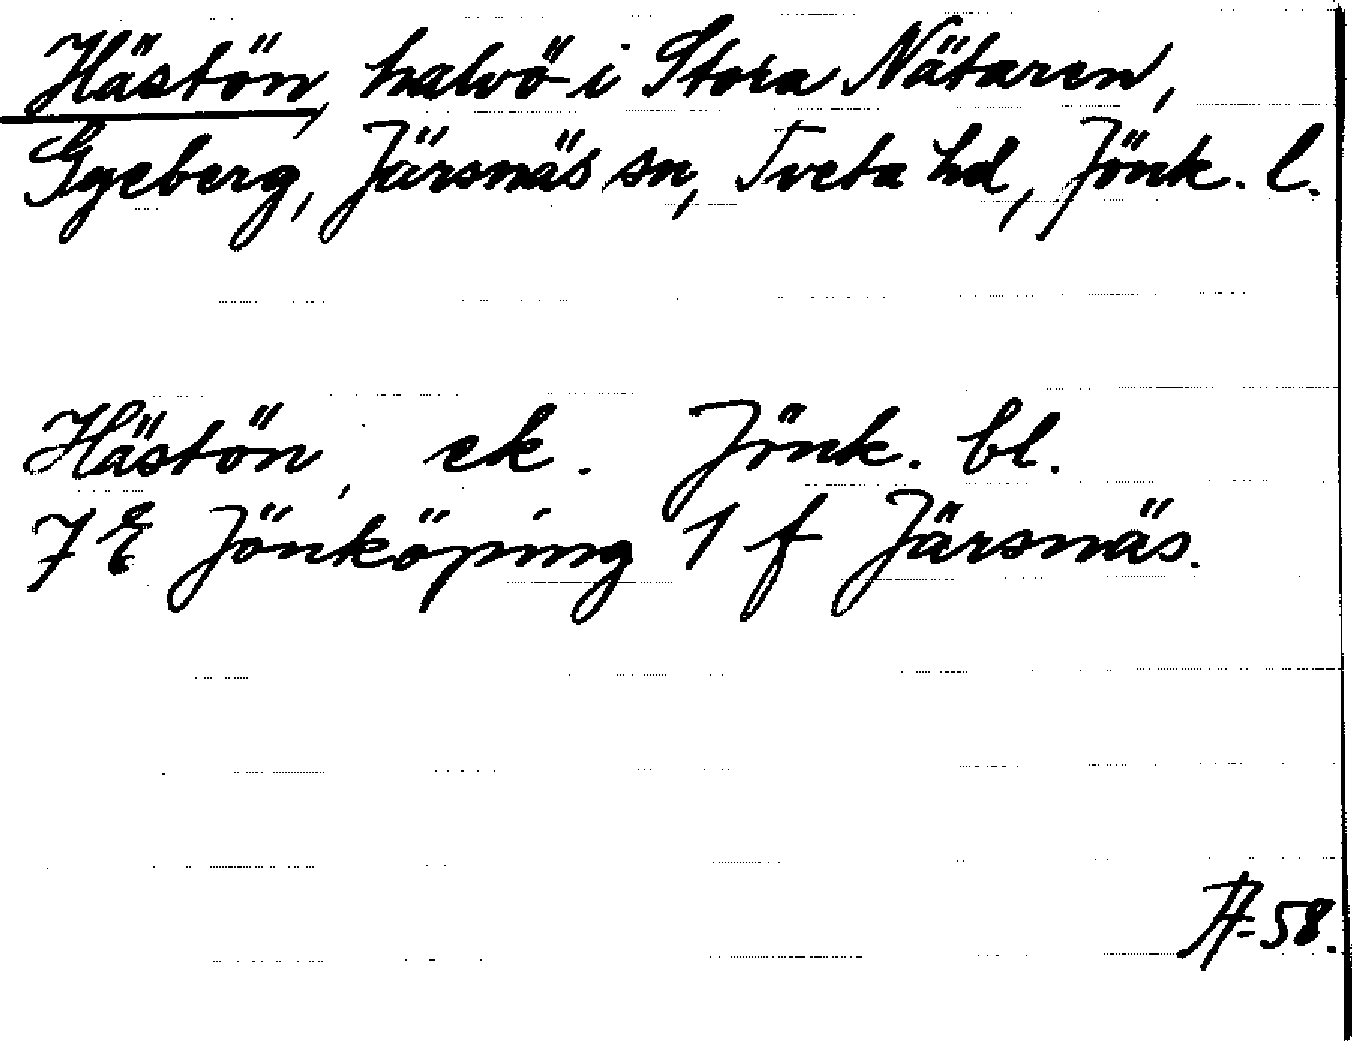 Hästön, halvö i Stora Nätaren,
Gyeberg, Järsnäs sn, Tveta hd, Jönk. l.
Hästön, ek. Jönk. bl.
7E Jönköping 1 f Järsnäs.
58.